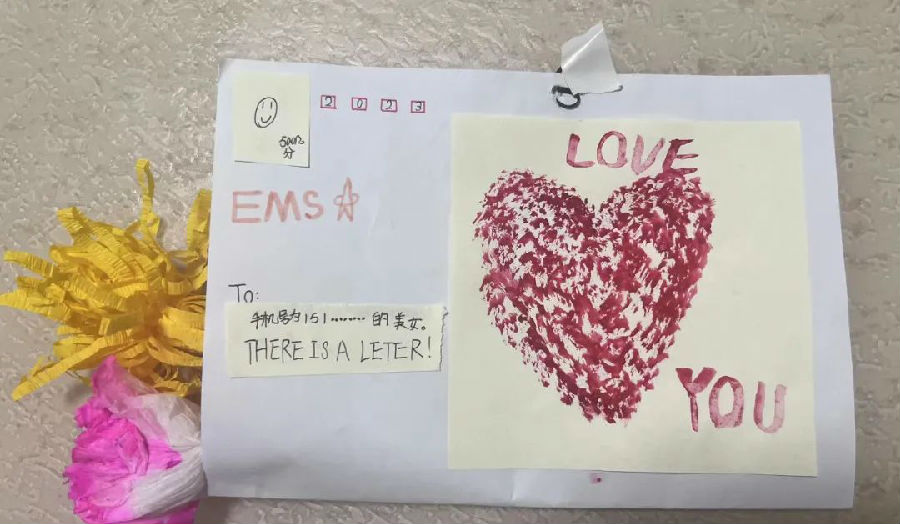 2023
分
EMS
To:
手机号为151........的美女。
THERE IS A LETER!
LOVE
YOU